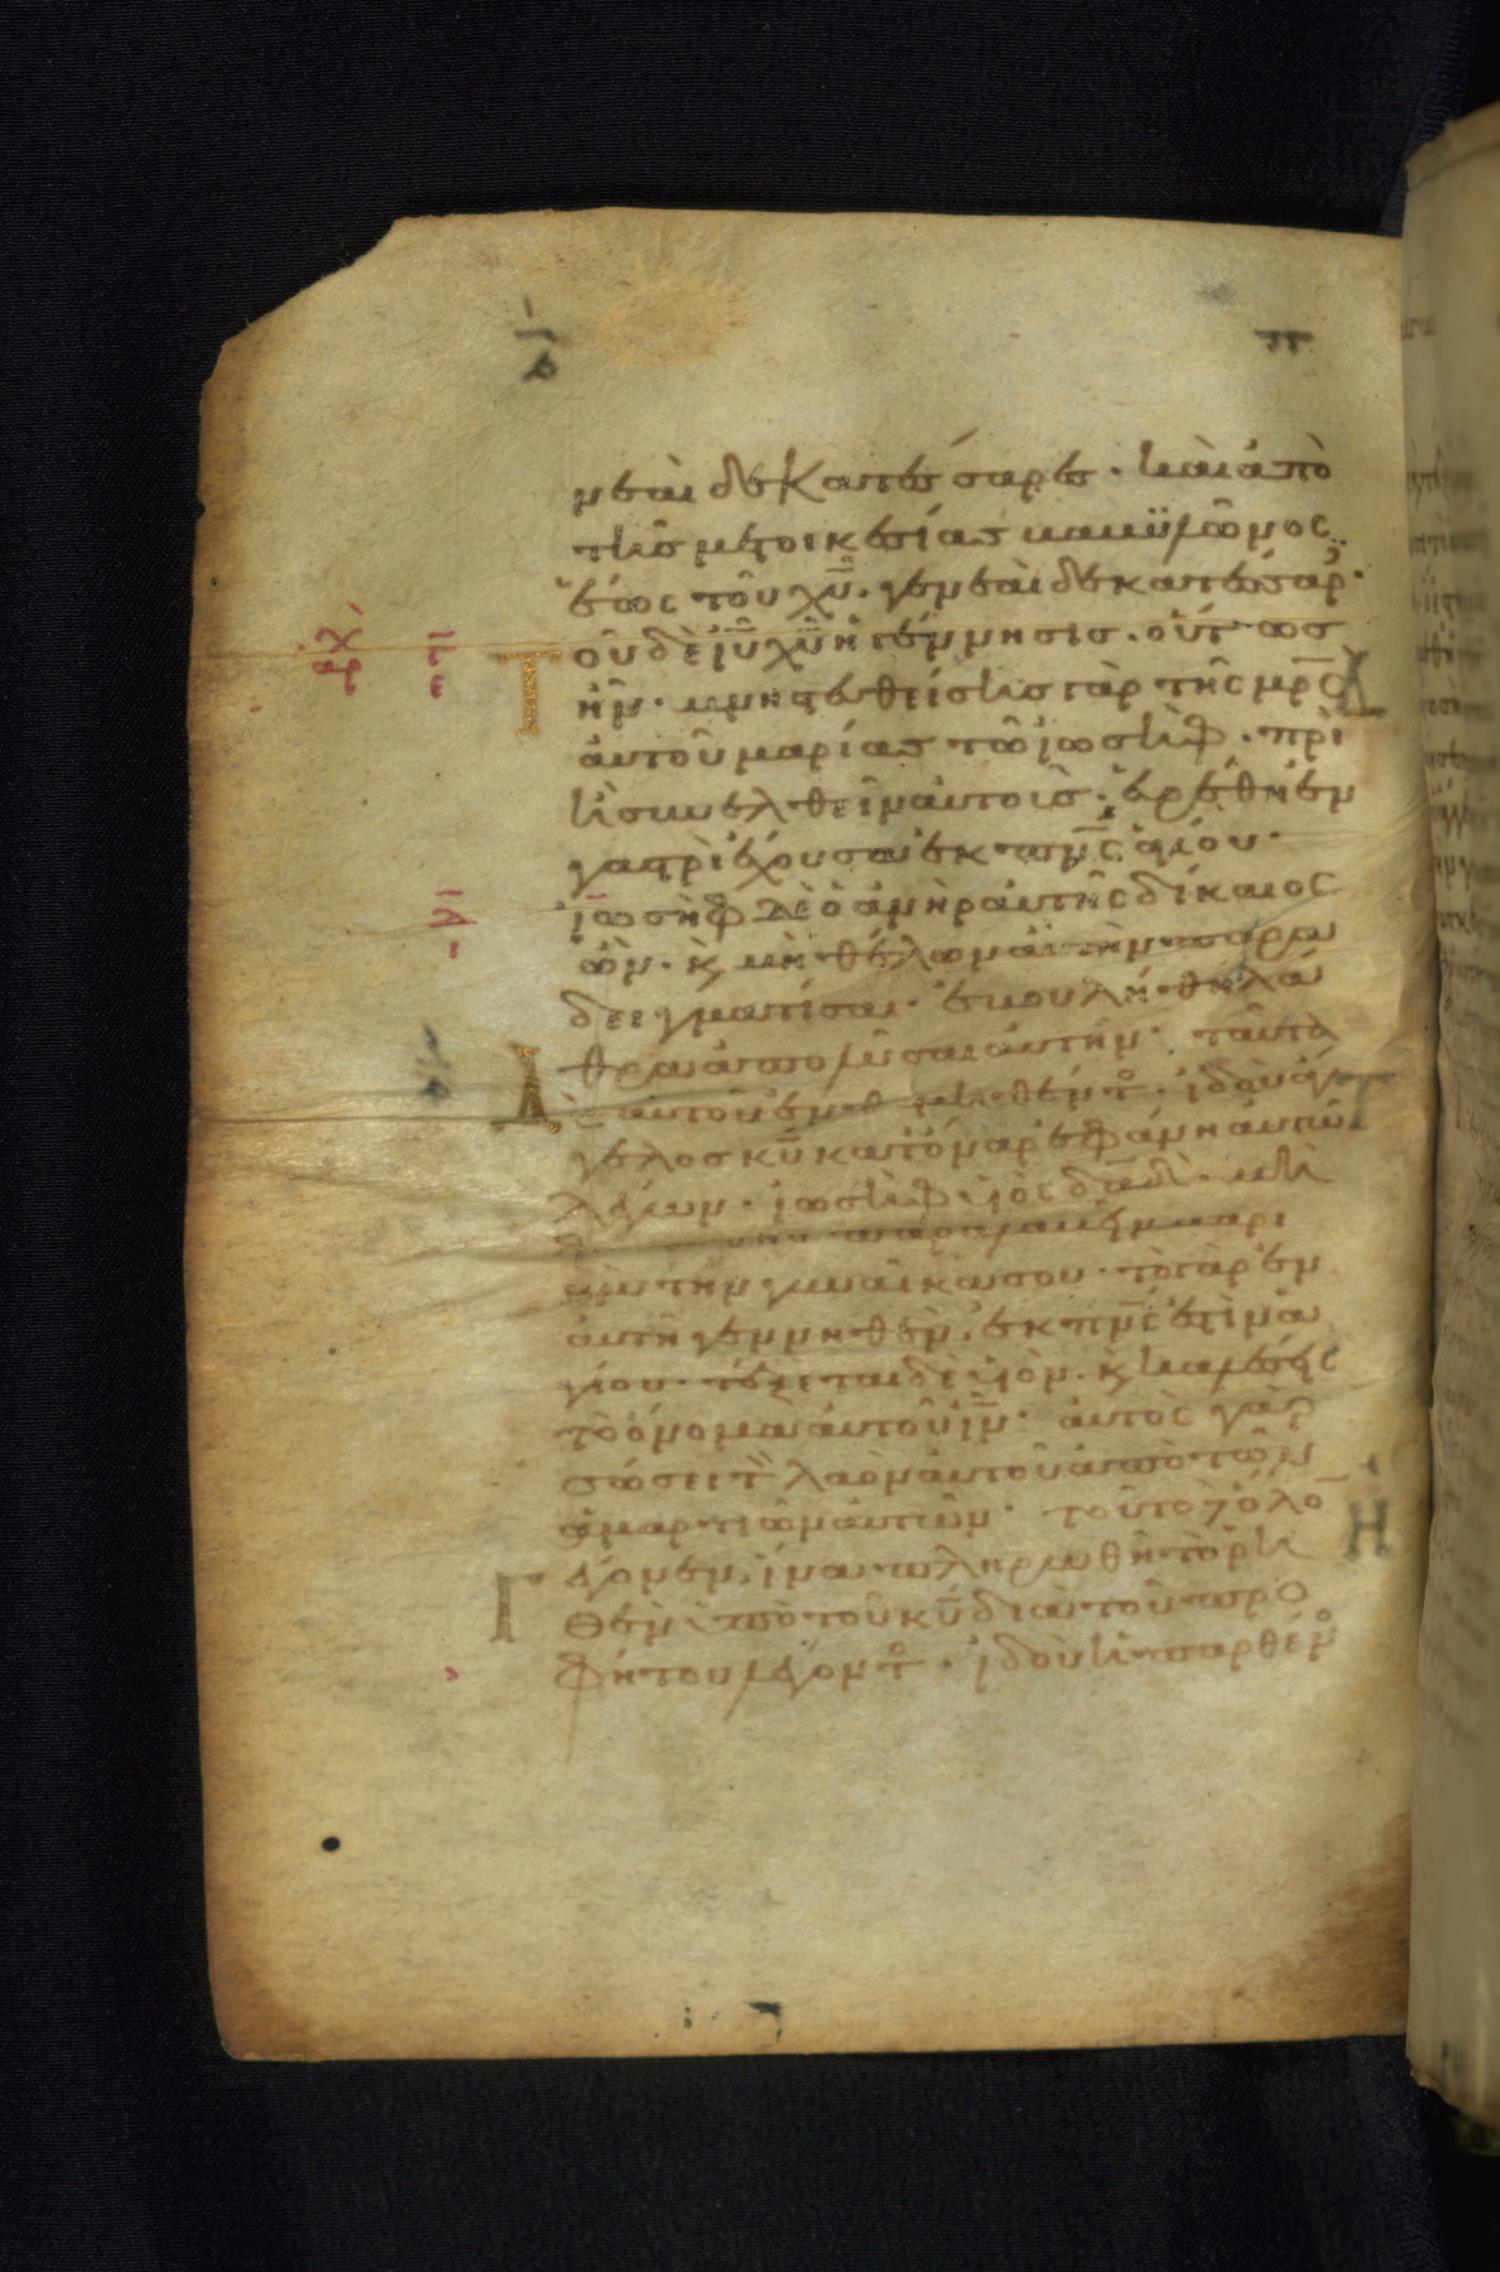 νεαὶ δεκατέσσαρες · καὶ ἀπὸ
τῆς μετοικεσίας βαβυλῶνος
ἕως τοῦ χ̅υ̅ · γενεαὶ δεκατέσσαρ·
Τοῦ δὲ ἰ̅υ̅ χ̅υ̅ ἡ γέννησις · οὕτως
ἦν · μνηστευθείσης γὰρ τῆς μ̅ρ̅ς̅
αὐτοῦ μαρίας τῶ ἰωσὴφ · πρὶ
ἢ συνελθεῖν αὐτοὺς · εὑρέθη ἐν
γαστρὶ ἔχουσα ἐκ π̅ν̅ς̅ ἁγίου ·
ἰωσὴφ δὲ ὁ ἀνὴρ αὐτῆς δίκαιος
ὢν · κ̀ μὴ θέλων αὐτὴν παρα
δειγματίσαι · ἐβουλήθη λά
θρα ἀπολῦσαι αὐτήν · ταῦτα
Δὲ αὐτοῦ ἐνθυμηθέντο · ἰδοὺ ἄγ
γελος κ̅υ̅ κατόναρ ἐφάνη αὐτῶ
λέγων · ἰωσὴφ υἱὸς δ̅α̅δ̅ · μὴ
παραλαβεῖν μαρι
ὰμ τὴν γυναῖκα σου · τὸ γὰρ ἐν
αὐτῆ γεννηθὲν · ἐκ π̅ν̅ς̅ ἐστὶν ἁ
γίου · τέξεται δὲ υἱὸν · κ̀ καλέσεις
τὸ ὄνομα αὐτοῦ ἰ̅ν̅ · αὐτὸς γὰρ
σώσει τὸ λαὸν αὐτοῦ ἀπὸ τῶν
ἁμαρτιῶν αὐτῶν · τοῦτο δὲ ὅλο̅
Γέγονεν · ἵνα πληρωθῆ τὸ ῥη
θὲν ὑπὸ τοῦ κ̅υ̅ διὰ τοῦ προ
φήτου λέγοντο · ἰδοὺ ἡ παρθένο